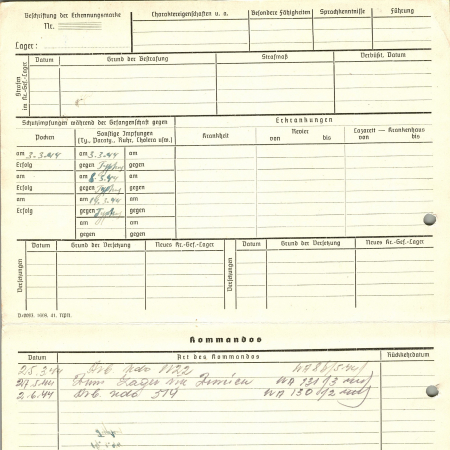 Beschriftung der Erkennungsmarke
Nr.
Lager:
Charaktereigenschaften u. a.
Besondere Fähigkeiten
Sprachkenntnisse
Führung
Strafen im Kr.-Gef.-Lager
Datum
Grund der Bestrafung
Strafmaß
Verbüßt, Datum
Schutzimpfungen während der Gefangenschaft gegen
Erkrankungen
Pocken
Sonstige Impfungen
(Ty., Paraty., Ruhr, Cholera usw.)
Krankheit
Revier
von bis
Lazarett — Krankenhaus
von bis
am 3.3.44 am 3.3.44 am
Erfolg gegen Typhus gegen
am am 8.3.44 am
Erfolg gegen Typhus gegen
am am 14.3.44 am
Erfolg gegen Typhus gegen
am am
gegen gegen
Versetzungen
Datum
Grund der Versetzung
Neues Kr.-Gef.-Lager
Versetzungen
Datum
Grund der Versetzung
Neues Kr.-Gef.-Lager
Kommandos
Datum
Art des Kommandos
Rückkehrdatum
25.3.44 Arb. Kdo 1122
27.5.44 Zum Lager
2.6.44 Arb. Kdo 514